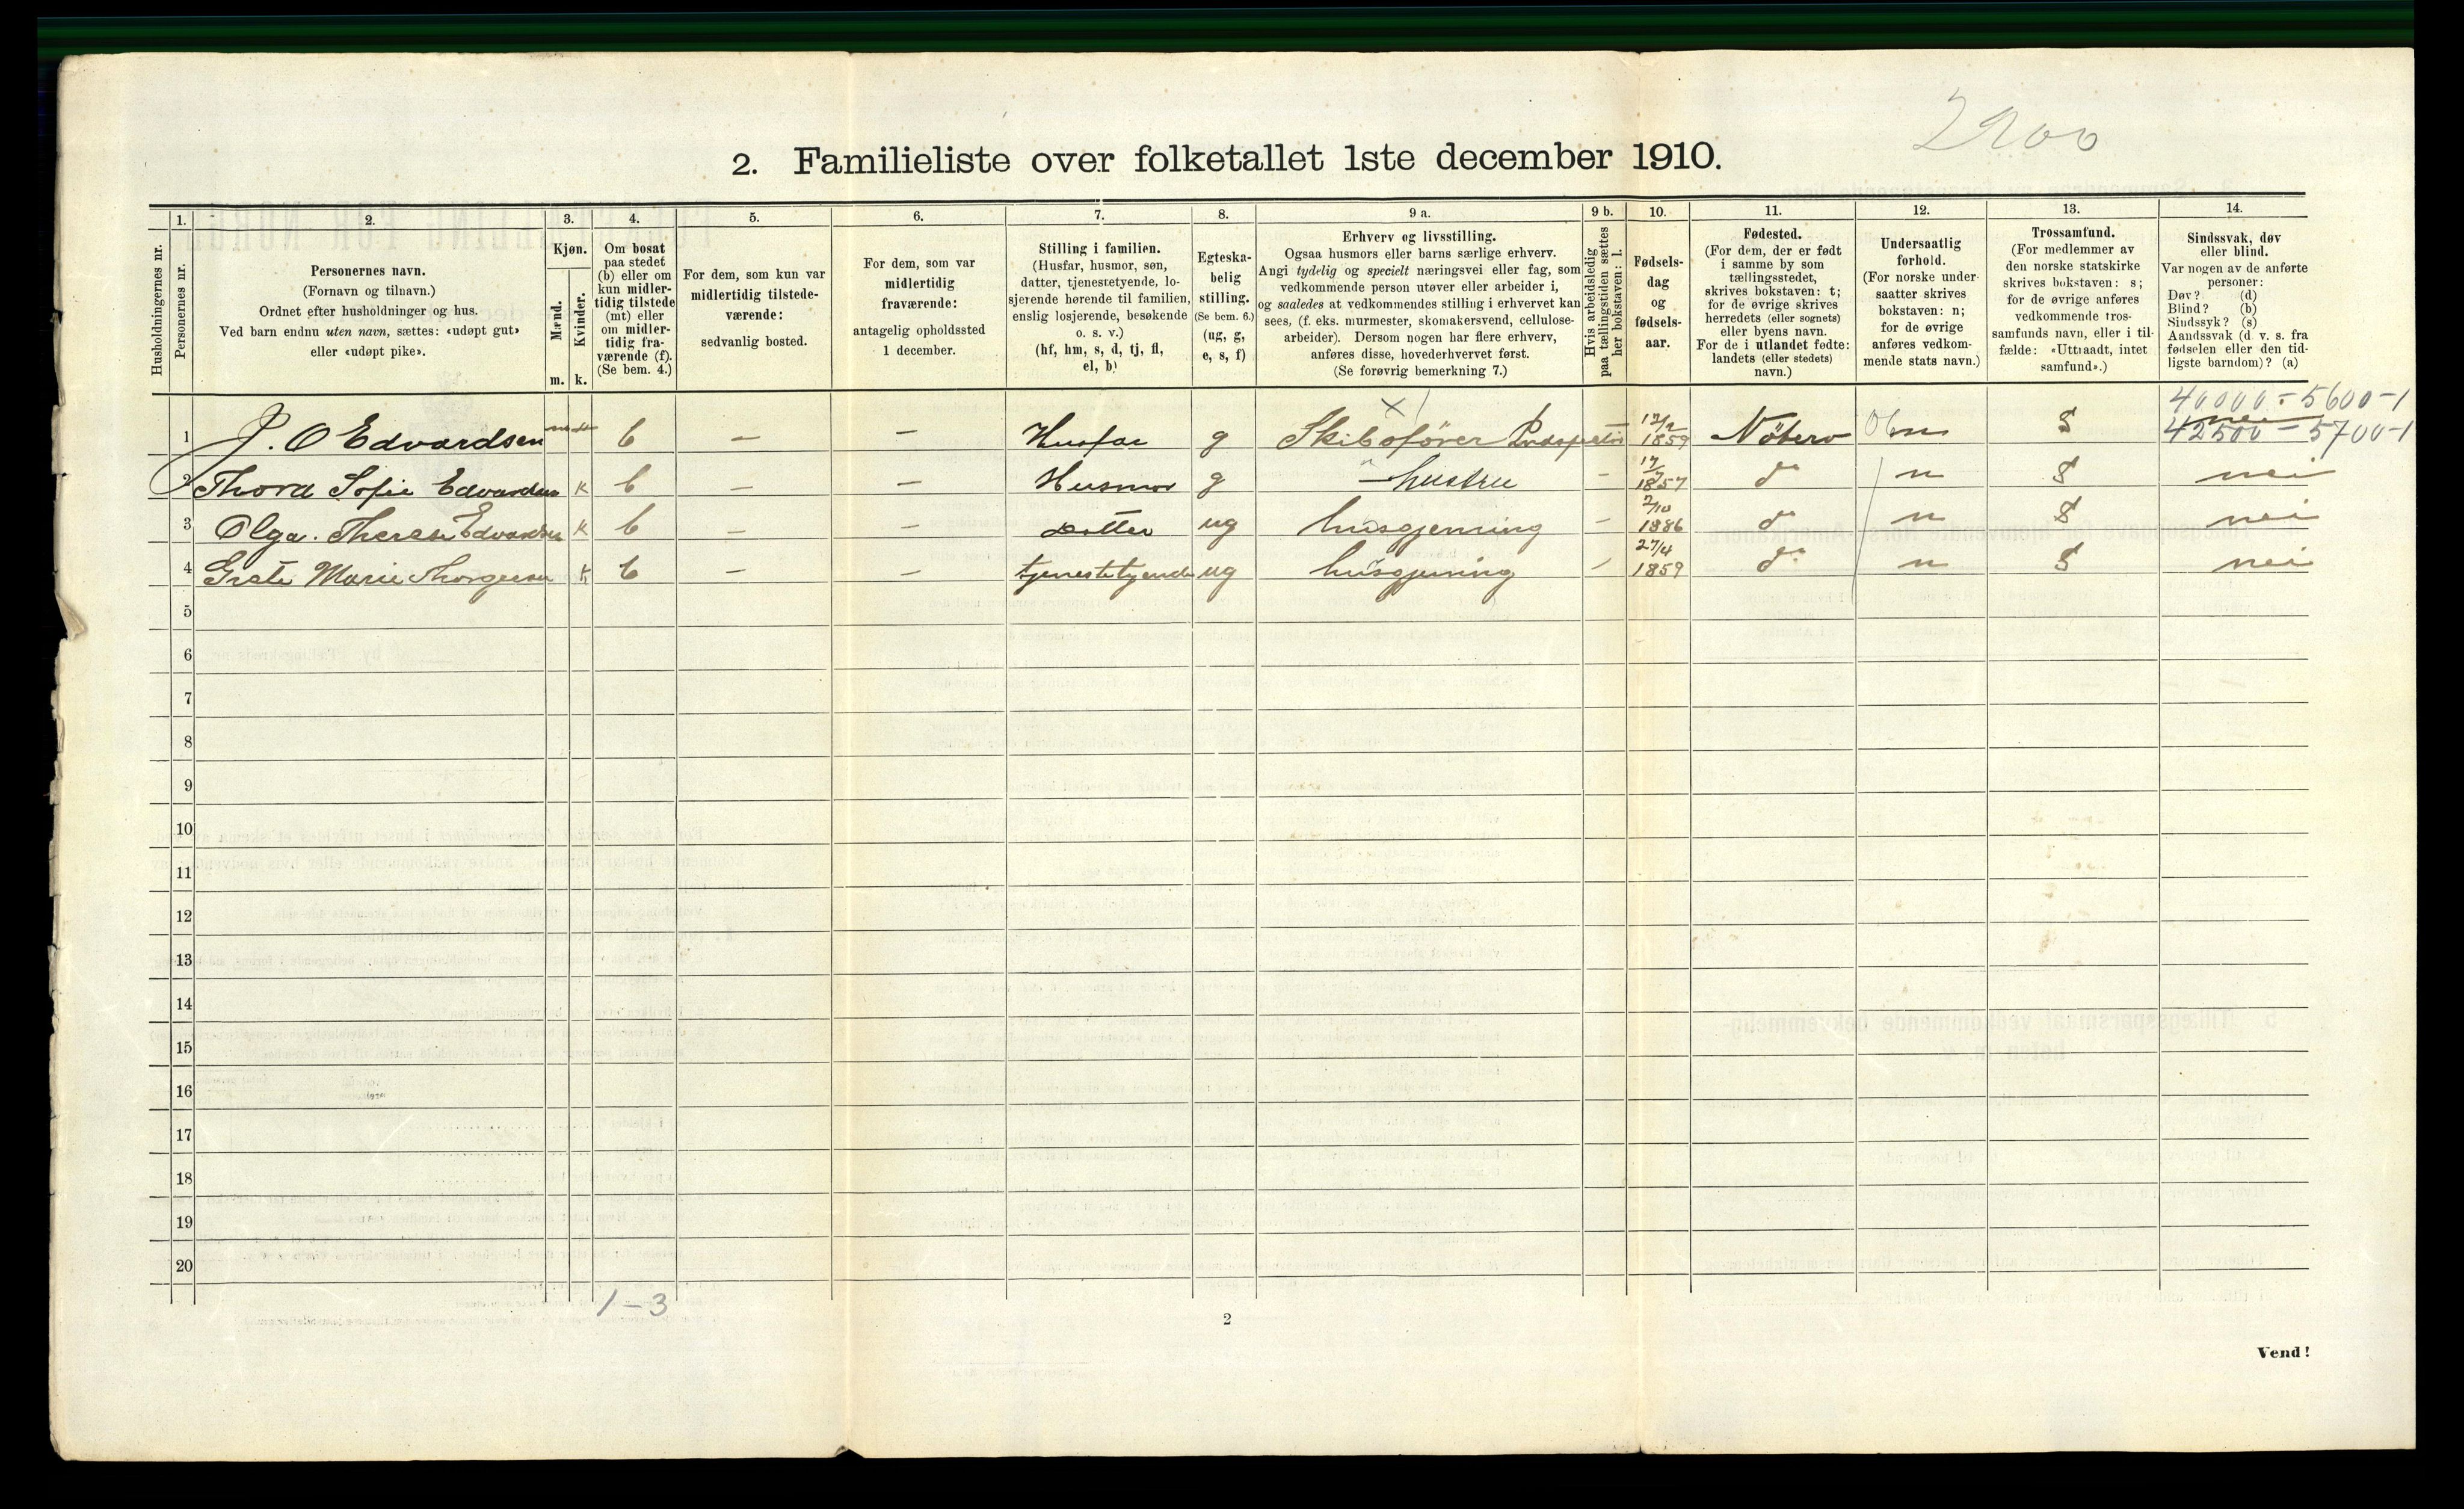 2200
2. Familieliste over folketallet 1ste december 1910.
Husholdningernes nr.
1.
Personernes nr.
2.
Personernes navn.
(Fornavn og tilnavn.)
Ordnet efter husholdninger og hus.
Ved barn endnu uten navn, sættes: «udøpt gut»
eller «udøpt pike».
3.
Kjøn.
Mænd.
Kvinder.
m. k.
4.
Om bosat
paa stedet
(b) eller om
kun midler-
tidig tilstede
(mt) eller
om midler-
tidig fra-
værende (f).
(Se bem. 4.)
5.
For dem, som kun var
midlertidig tilstede-
værende:
sedvanlig bosted.
6.
For dem, som var
midlertidig
fraværende:
antagelig opholdssted
1 december.
7.
Stilling i familien.
(Husfar, husmor, søn,
datter, tjenestetyende, lo-
sjerende hørende til familien,
enslig losjerende, besøkende
o. s. v.)
(hf, hm, s, d, tj, fl,
el, b)
8.
Egteska-
belig
stilling.
(Se bem. 6.)
(ug, g,
e, s, f)
9 a.
Erhverv og livsstilling.
Ogsaa husmors eller barns særlige erhverv.
Angi tydelig og specielt næringsvei eller fag, som
vedkommende person utøver eller arbeider i,
og saaledes at vedkommendes stilling i erhvervet kan
sees, (f. eks. murmester, skomakersvend, cellulose-
arbeider). Dersom nogen har flere erhverv,
anføres disse, hovederhvervet først.
(Se forøvrig bemerkning 7.)
9 b.
Hvis arbeidsledig
paa tællingstiden sættes
her bokstaven: l.
10.
Fødsels-
dag
og
fødsels-
aar.
11.
Fødested.
(For dem, der er født
i samme by som
tællingsstedet,
skrives bokstaven: t;
for de øvrige skrives
herredets (eller sognets)
eller byens navn.
For de i utlandet fødte:
landets (eller stedets)
navn.)
12.
Undersaatlig
forhold.
(For norske under-
saatter skrives
bokstaven: n;
for de øvrige
anføres vedkom-
mende stats navn.)
13.
Trossamfund.
(For medlemmer av
den norske statskirke
skrives bokstaven: s;
for de øvrige anføres
vedkommende tros-
samfunds navn, eller i til-
fælde: «Uttraadt, intet
samfund».)
14.
Sindssvak, døv
eller blind.
Var nogen av de anførte
personer:
Døv? (d)
Blind? (b)
Sindssyk? (s)
Aandssvak (d. v. s. fra
fødselen eller den tid-
ligste barndom)? (a)
40000 - 5600 - 1
1 J. O Edvardsen b — — Husfar g Skibsfører 1859 Nöterø n S nei
42500 - 5700 - 1
2 Thora Sofie Edvardsen k b — — Husmor g hustru - 1857 do n S nei
3 Olga Therese Edvardsen k b — — Datter ug husgjerning - 2/10 1886 do n S nei
4 Grete Marie Thorgersen k b — — tjenestetyende ug husgjerning - 27/4 1859 do n S nei
5
6
7
8
9
10
11
12
13
14
15
16
17
18
19
20
1 - 3
2
Vend!